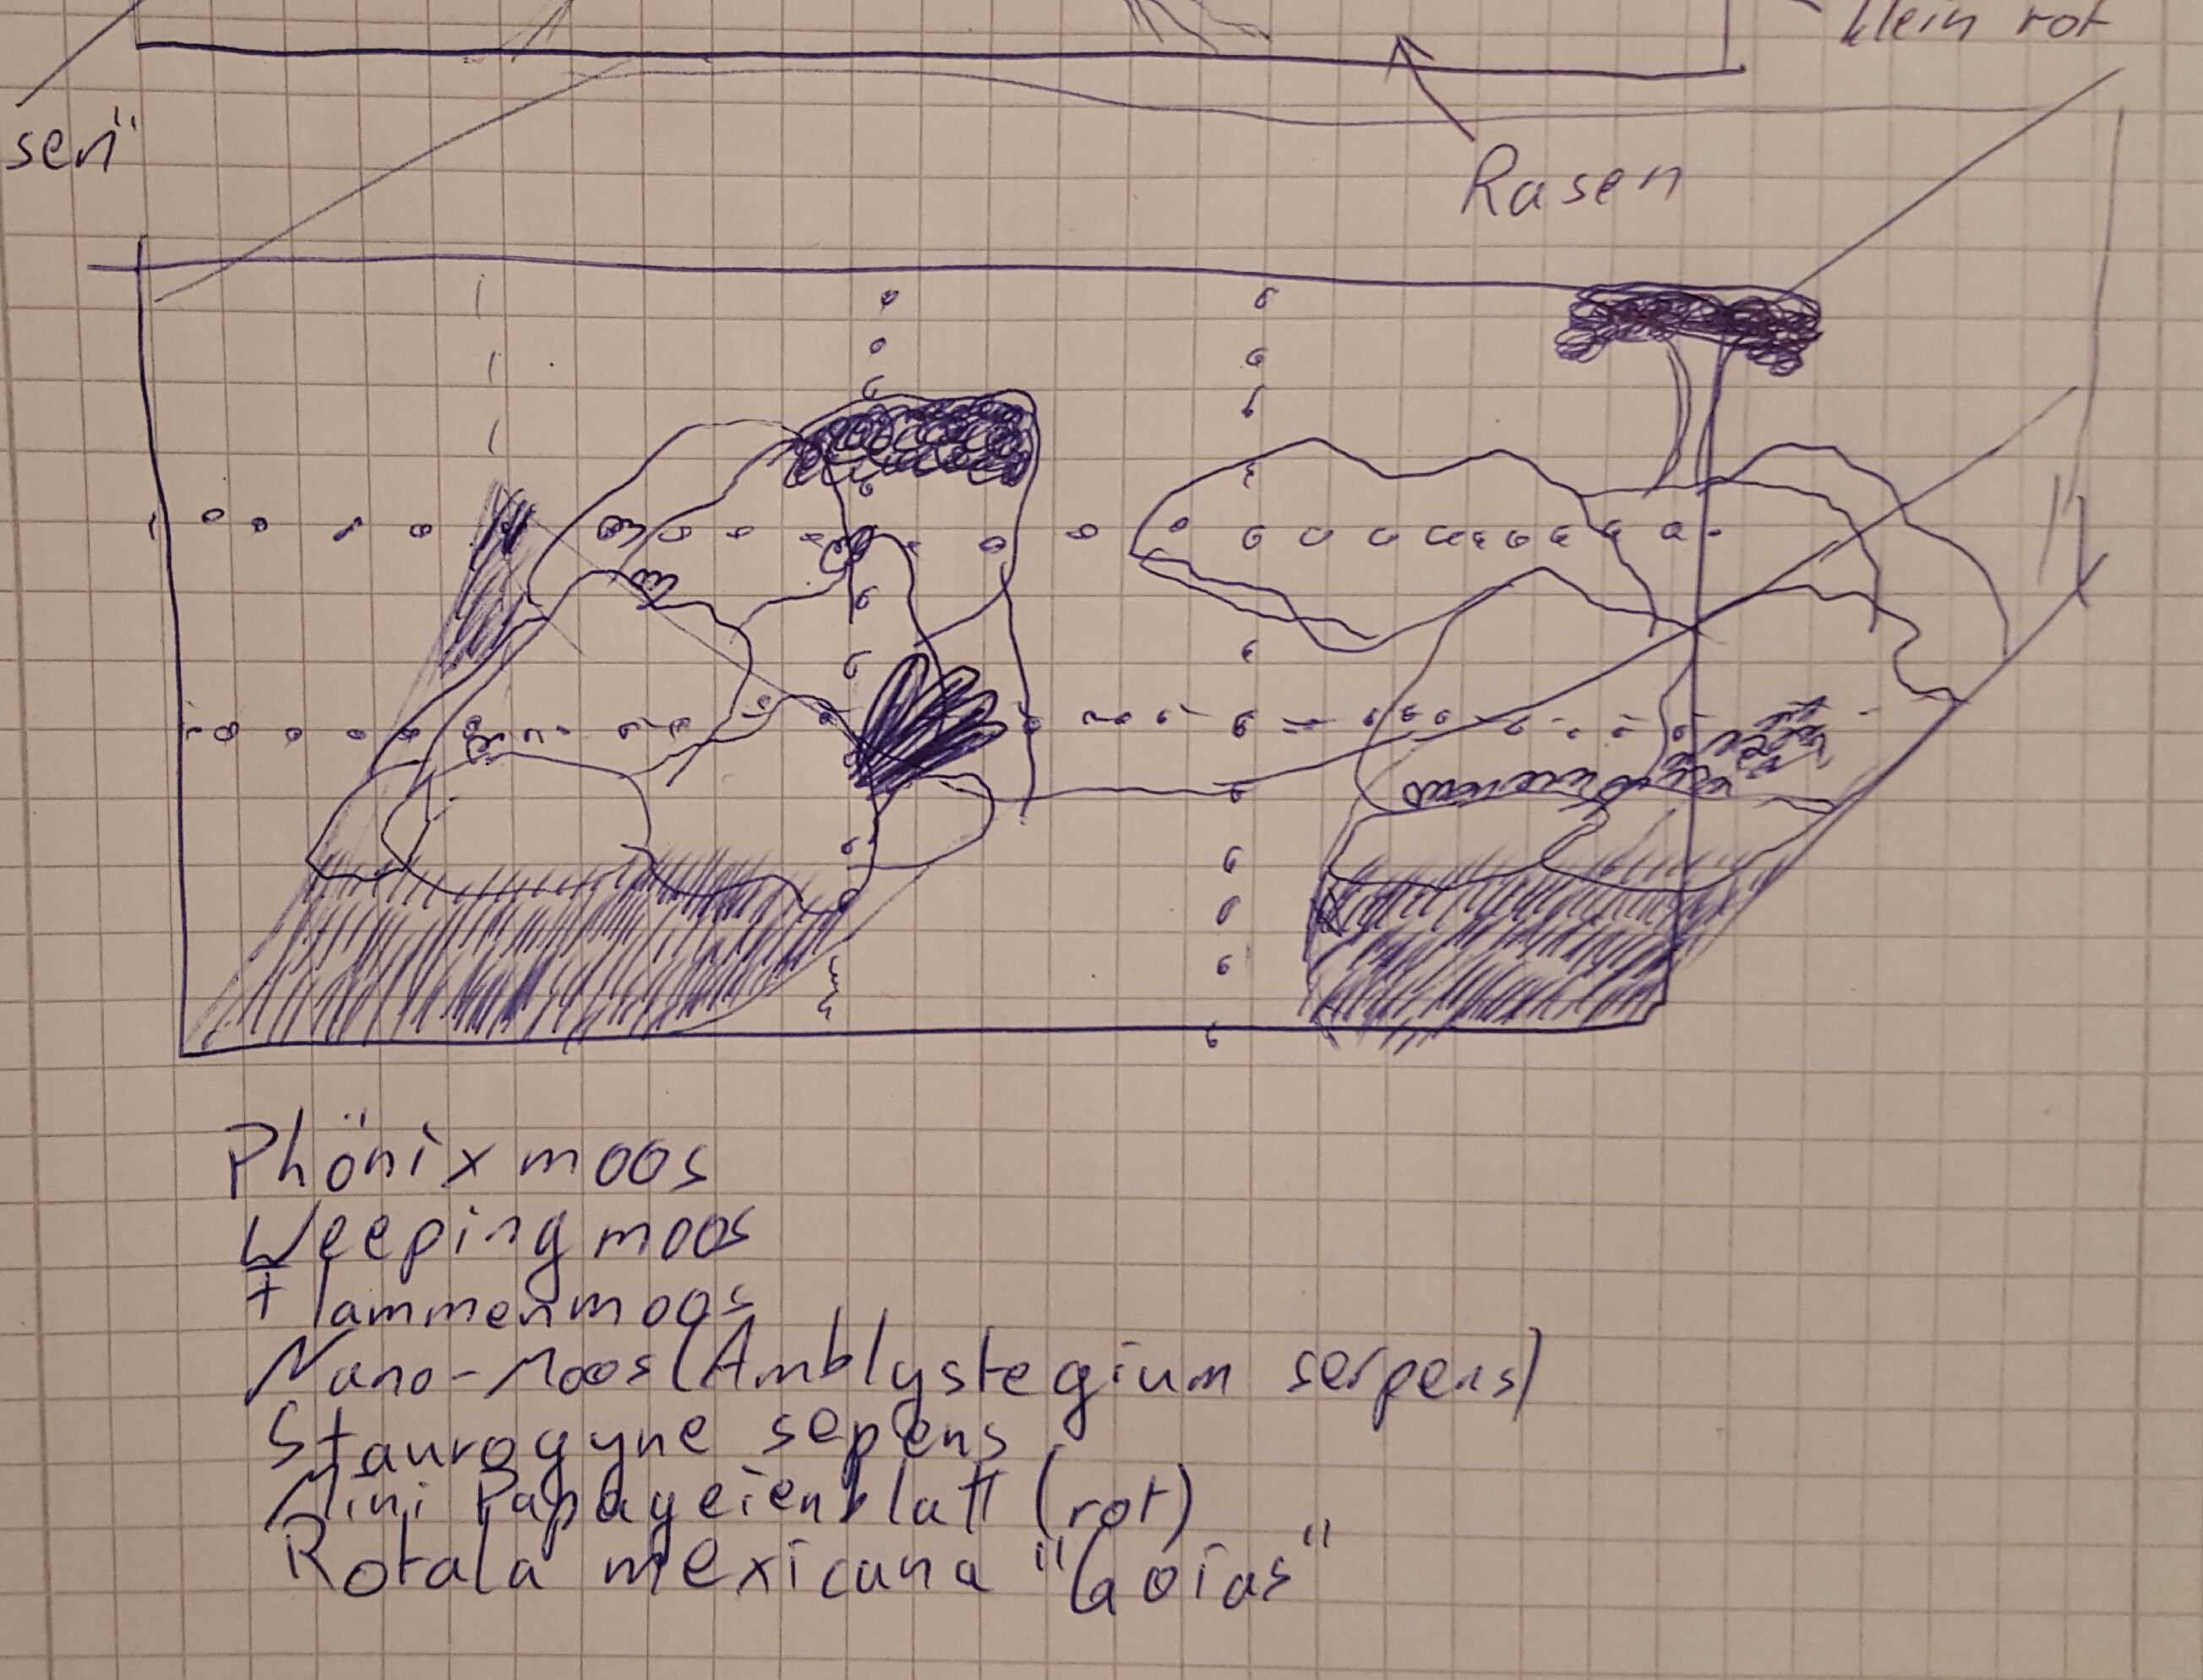 klein rot
sen"
Rasen
Phönixmoos
Weepingmoos
Flammenmoos
Nano-Moos (Amblystegium serpens)
Staurogyne sepens
Mini Papageienblatt (rot)
Rotala mexicana "Goias"